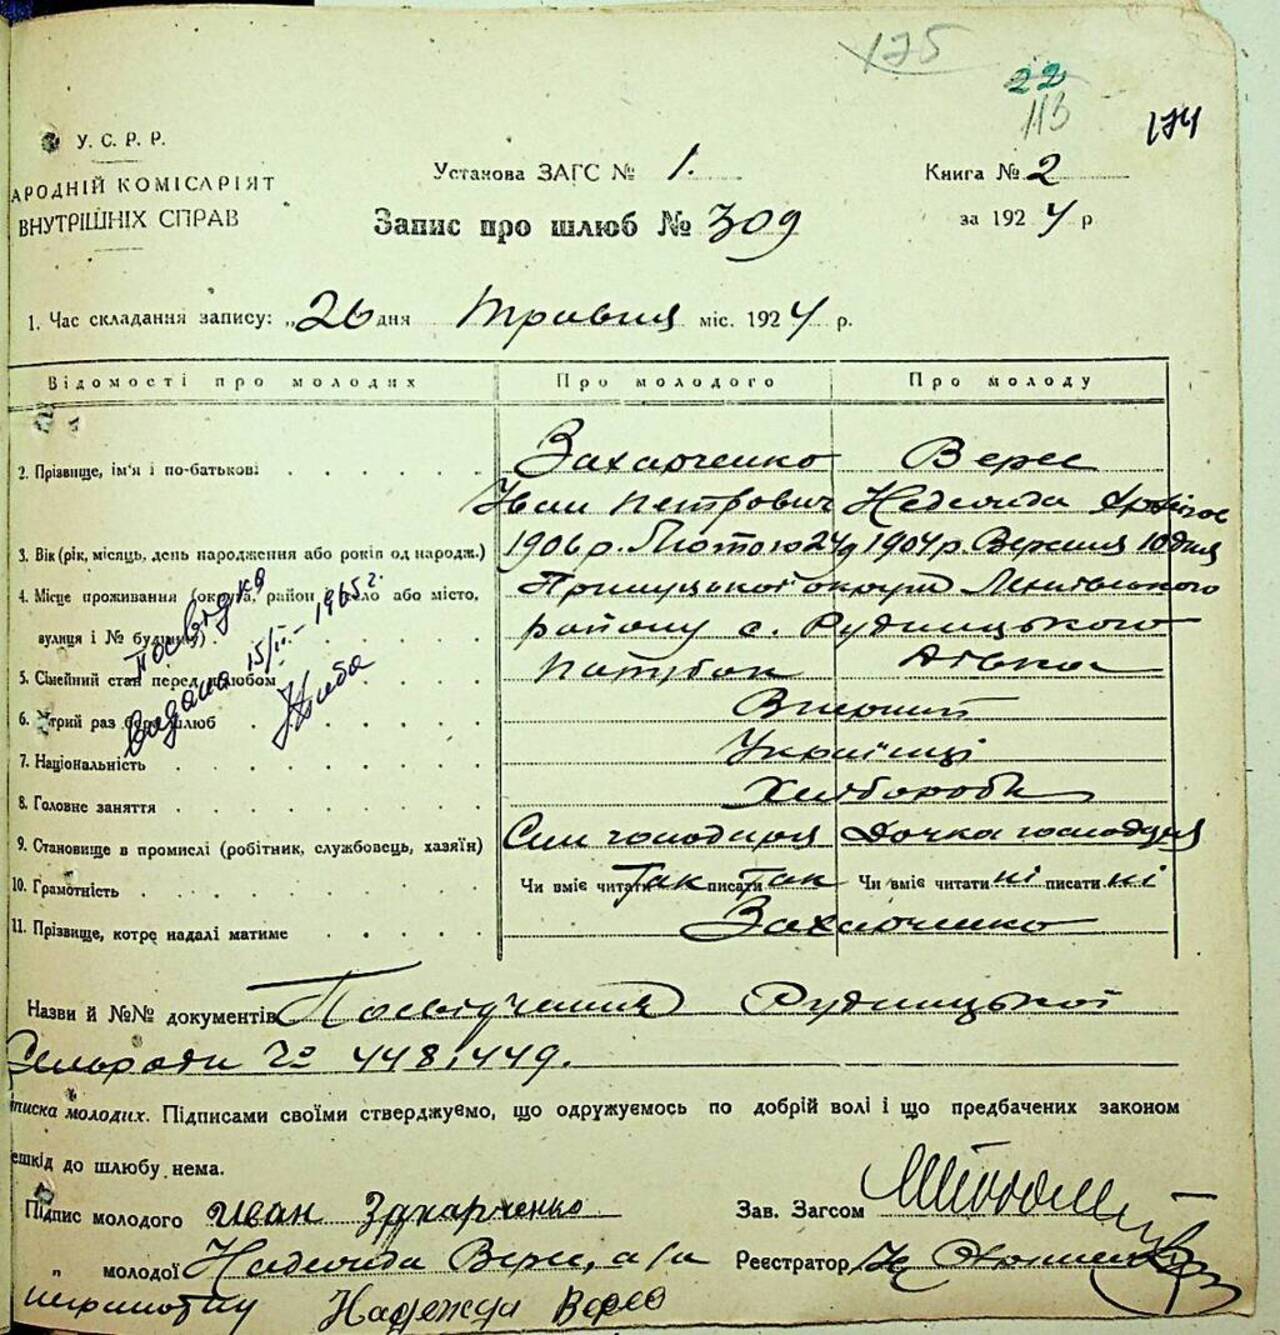 175
22
113
174
У. С. Р. Р.
АРОДНІЙ КОМІСАРІЯТ
ВНУТРІШНІХ СПРАВ
Установа ЗАГС № 1.
Книга № 2
Запис про шлюб № 309
за 1924 р
1. Час складання запису: „26 дня Травня міс. 1924 р.
Відомості про молодих Про молодого Про молоду
2. Прізвище, ім'я і по-батькові Захарченко Верес
Іван Петрович Надежда
3. Вік (рік, місяць, день народження або років од народж.) 1906 р. Лютого 24д 1904 р. Вересня 10 дня
4. Місце проживання (округа, район, село або місто, Прилуцької округи
вулиця і № будинку) району с. Рудницького
5. Сімейний стан перед шлюбом Парубок Дівка
6. Котрий раз бере шлюб Вперший
7. Національність Українці
8. Головне заняття Хлібороби
9. Становище в промислі (робітник, службовець, хазяїн) Син господаря Дочка господаря
10. Грамотність Чи вміє читати так писати так Чи вміє читати ні писати ні
11. Прізвище, котре надалі матиме Захарченко
Видана 15/II - 1965 г.
Назви й №№ документів Посвідчення Рудницької
Сельради Чо 448, 449.
писка молодих. Підписами своїми стверджуємо, що одружуємось по добрій волі і що предбачених законом
ешкід до шлюбу нема.
Підпис молодого Иван Захарченко Зав. Загсом
„ молодої Надежда Верес, а за Реєстратор
неграмотну Надежда Верес